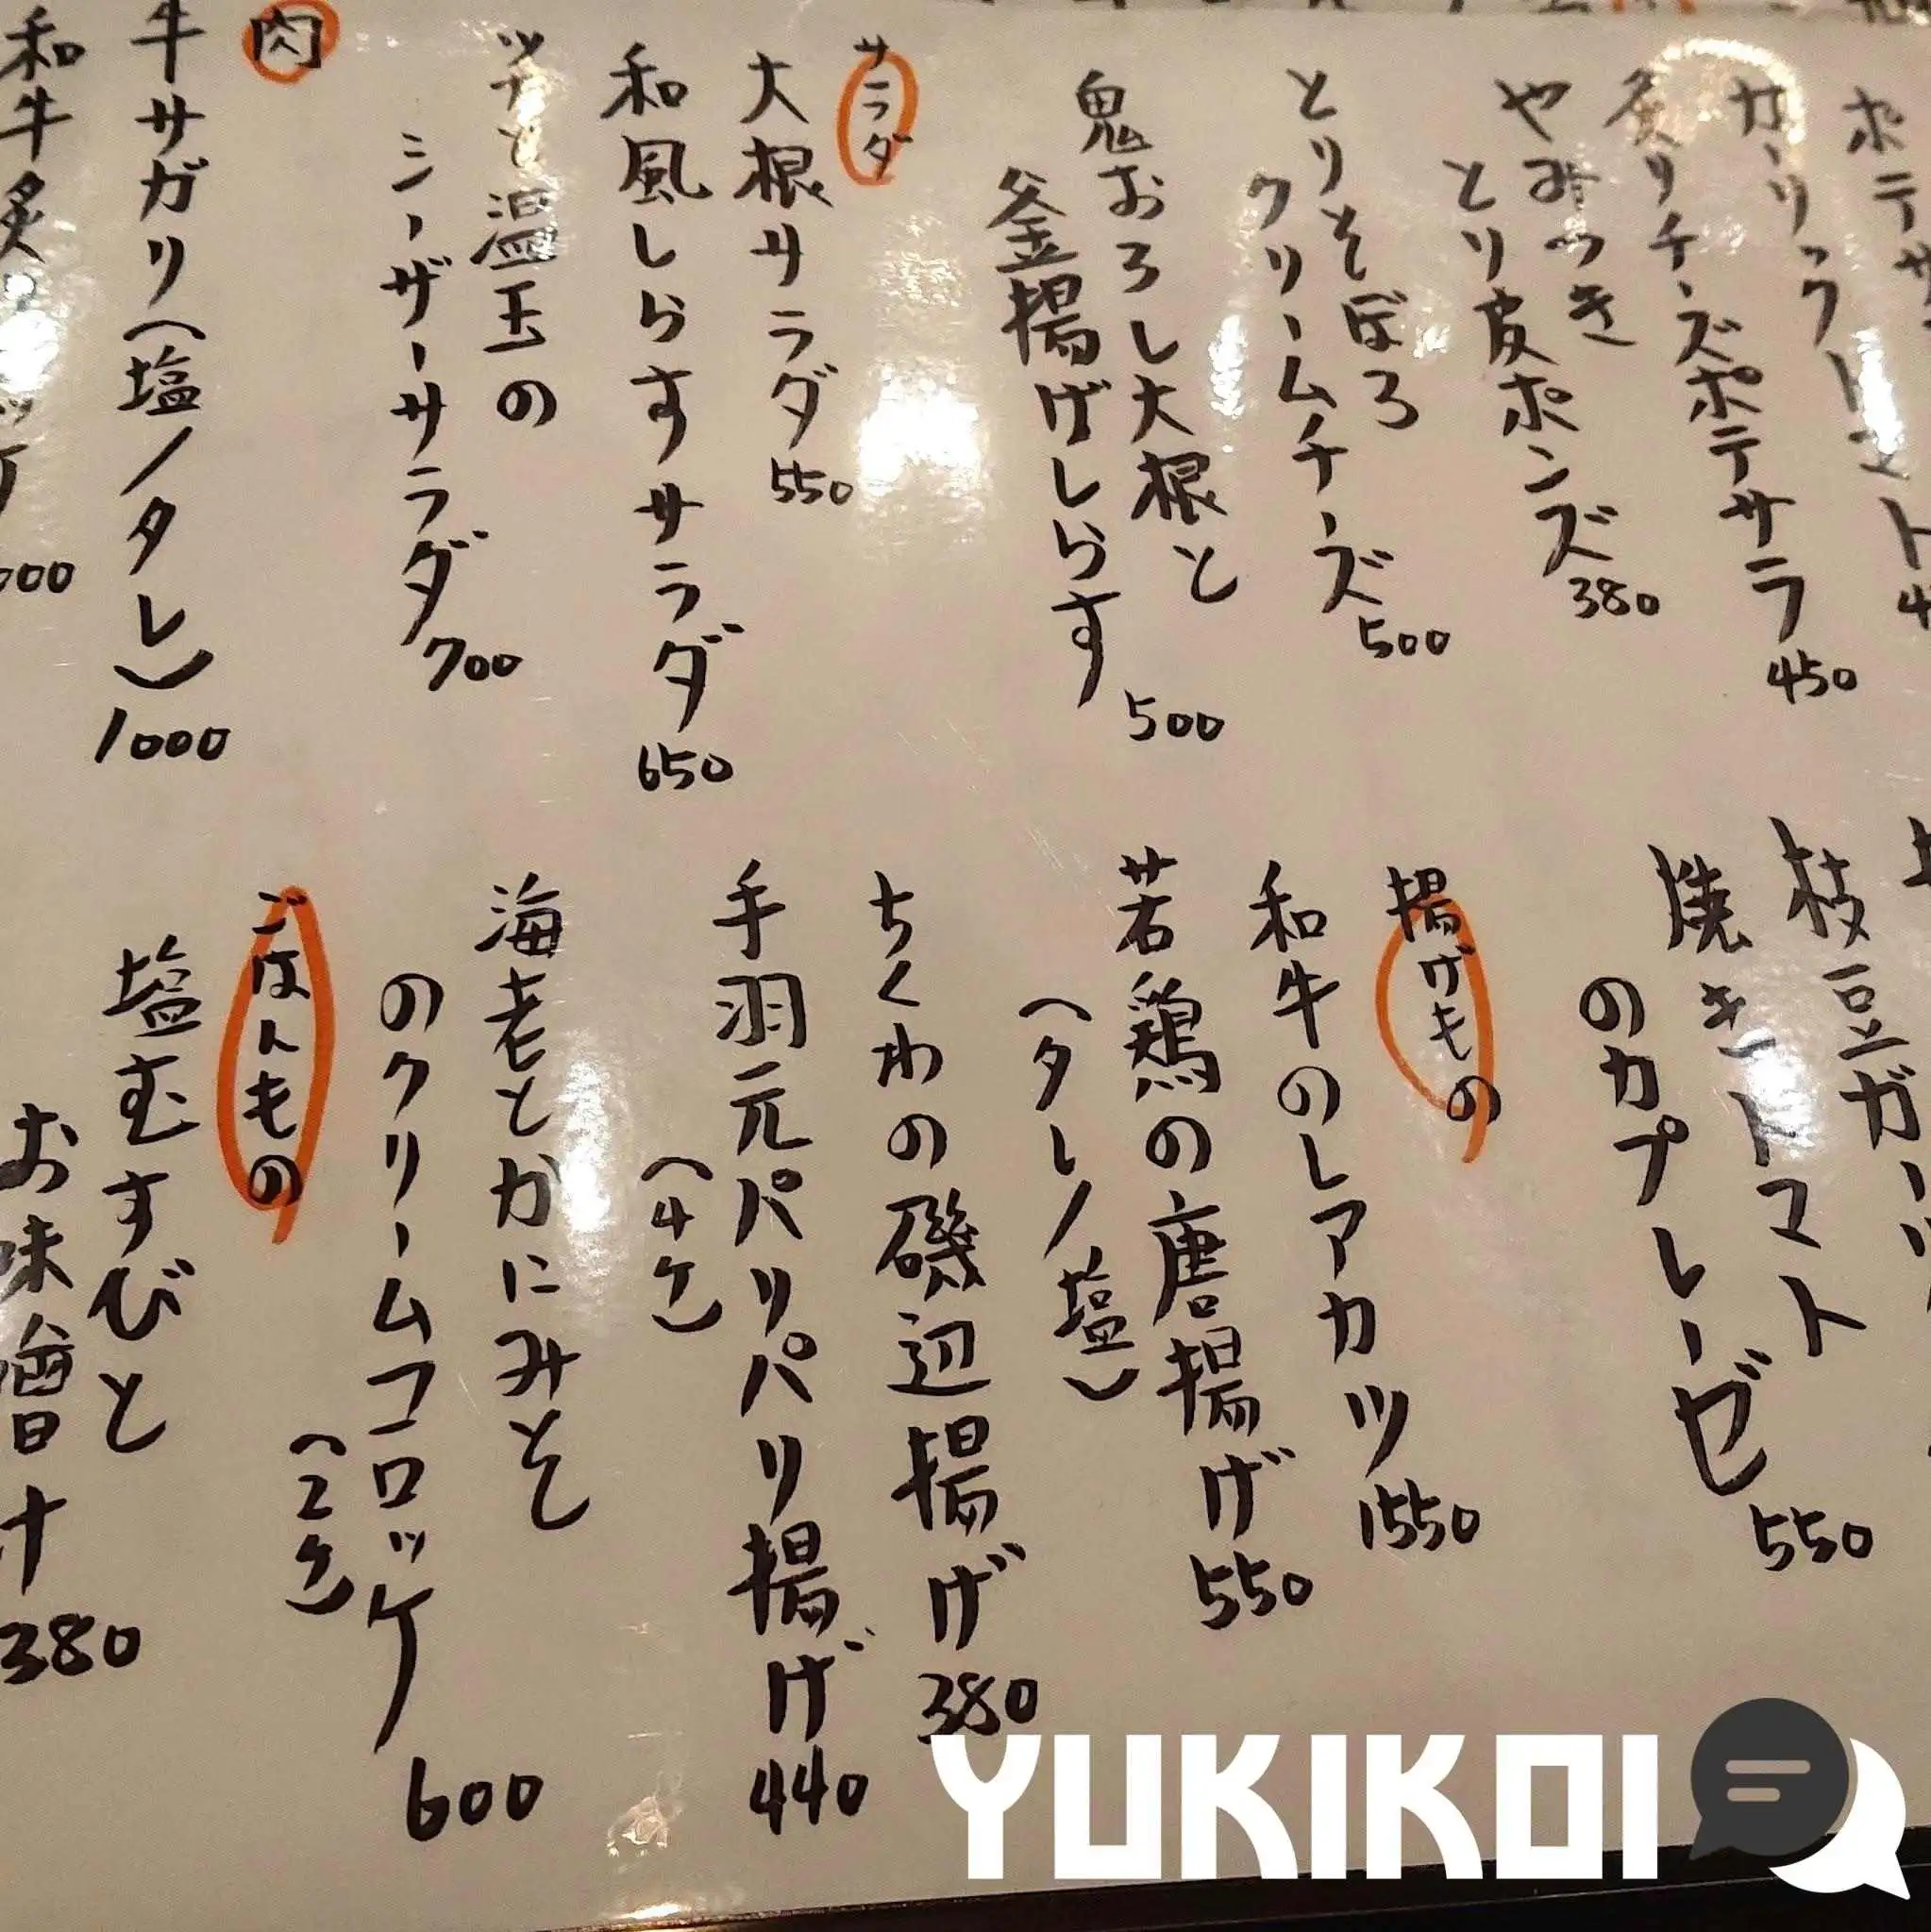 ポテサ
ガーリックトマト
炙りチーズポテサラ 450
やみつき
とり皮ポンズ 380
とりそぼろ
クリームチーズ 500
鬼おろし大根と
釜揚げしらす 500
サラダ
大根サラダ 550
和風しらすサラダ 650
ツナと温玉の
シーザーサラダ 700
肉
牛サガリ(塩/タレ) 1000
和牛炙り
枝豆ガーリ
焼きトマト
のカプレーゼ 550
揚げもの
和牛のレアカツ 1550
若鶏の唐揚げ 550
(タレ/塩)
ちくわの磯辺揚げ 380
手羽元パリパリ揚げ 440
(4ケ)
海老とかにみそ
のクリームコロッケ 600
(2ケ)
ごはんもの
塩むすびと
お味噌汁 380
YUKIKOI